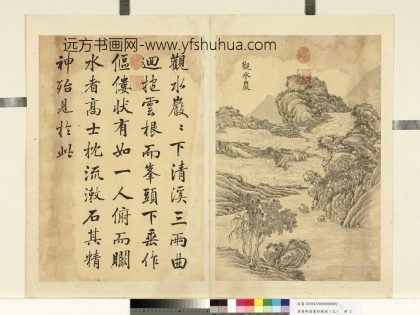 远方书画网-www.yfshuhua.com
觀水巖
觀水巖巖下清溪三兩曲
迴抱雲根而峯頭下垂作
傴僂状有如一人俯而瞰
水者高士枕流漱石其精
神殆見於此